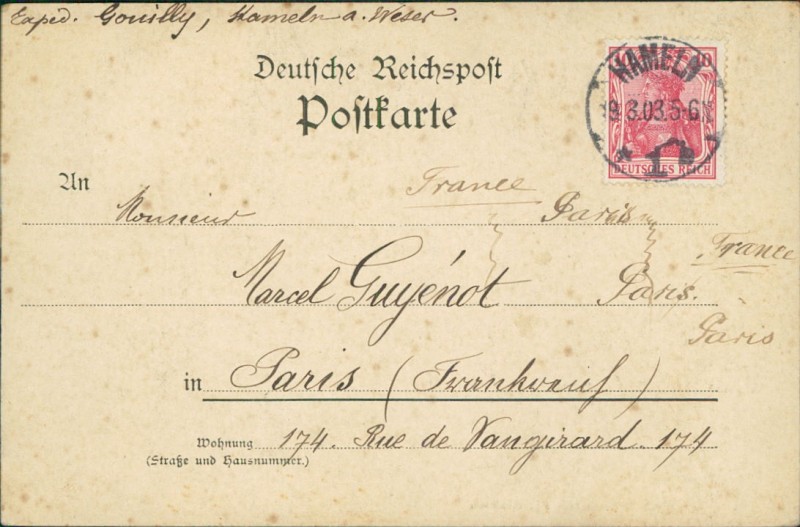 Exped. Gouilly, Hameln a. Weser.
Deutsche Reichspost
Postkarte
HAMELN
9.3.03.5-6N
* 1
10
DEUTSCHES REICH
An
France
Monsieur Paris
France
Marcel Guyénot Paris.
Paris
in Paris (Frankreich)
Wohnung 174. Rue de Vangirard. 174
(Straße und Hausnummer.)